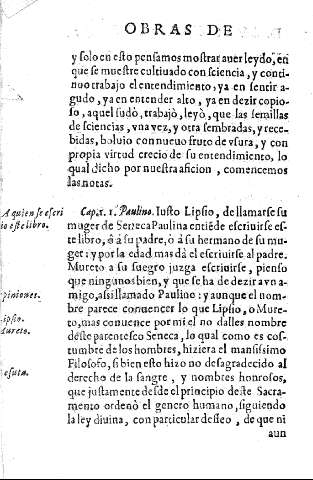 OBRAS DE
y solo en esto pensamos mostrar auer leydo, en
que se muestre cultiuado con sciencia, y conti-
nuo trabajo el entendimiento, ya en sentir a-
gudo, ya en entender alto, ya en dezir copio-
so, aquel sudò, trabajò, leyò, que las semillas
de sciencias, vna vez, y otra sembradas, y rece-
bidas, boluio con nueuo fruto de vsura, y con
propia virtud crecio de su entendimiento, lo
qual dicho por nuestra aficion, comencemos
las notas.
A quien se escri
io este libro.
Cap. 1. 1. Paulino. Iusto Lipsio, de llamarse su
muger de Seneca Paulina entiēde escriuirse es-
te libro, ò à su padre, ò à su hermano de su mu-
get: y por la edad mas dà el escriuirse al padre.
Mureto a su suegro juzga escriuirse, pienso
que ninguno bien, y que se ha de dezir a vn a-
migo, assi llamado Paulino: y aunque el nom-
bre parece conuencer lo que Lipsio, o Mure-
to, mas conuence por mi el no dalles nombre
deste parentesco Seneca, lo qual como es cos-
tumbre de los hombres, hiziera el mansissimo
Filosofo, si bien esto hizo no desagradecido al
derecho de la sangre, y nombres honrosos,
que justamente desde el principio deste Sacra-
mento ordenò el genero humano, siguiendo
la ley diuina, con particular desseo, de que ni
aun
piniones.
Lipsio.
Mureto.
efuta.